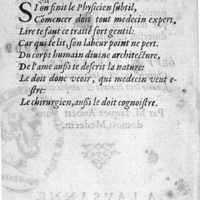 SI on finit le Physicien subtil,
Comencer doit tout medecin expert,
Lire te faut ce traité fort gentil:
Car qui le lit, son labeur point ne pert.
Du corps humain divine architecture,
De l'ame außi te descrit la nature:
Le doit donc veoir, qui medecin veut e-
stre:
Le chirurgien, außi le doit cognoistre.